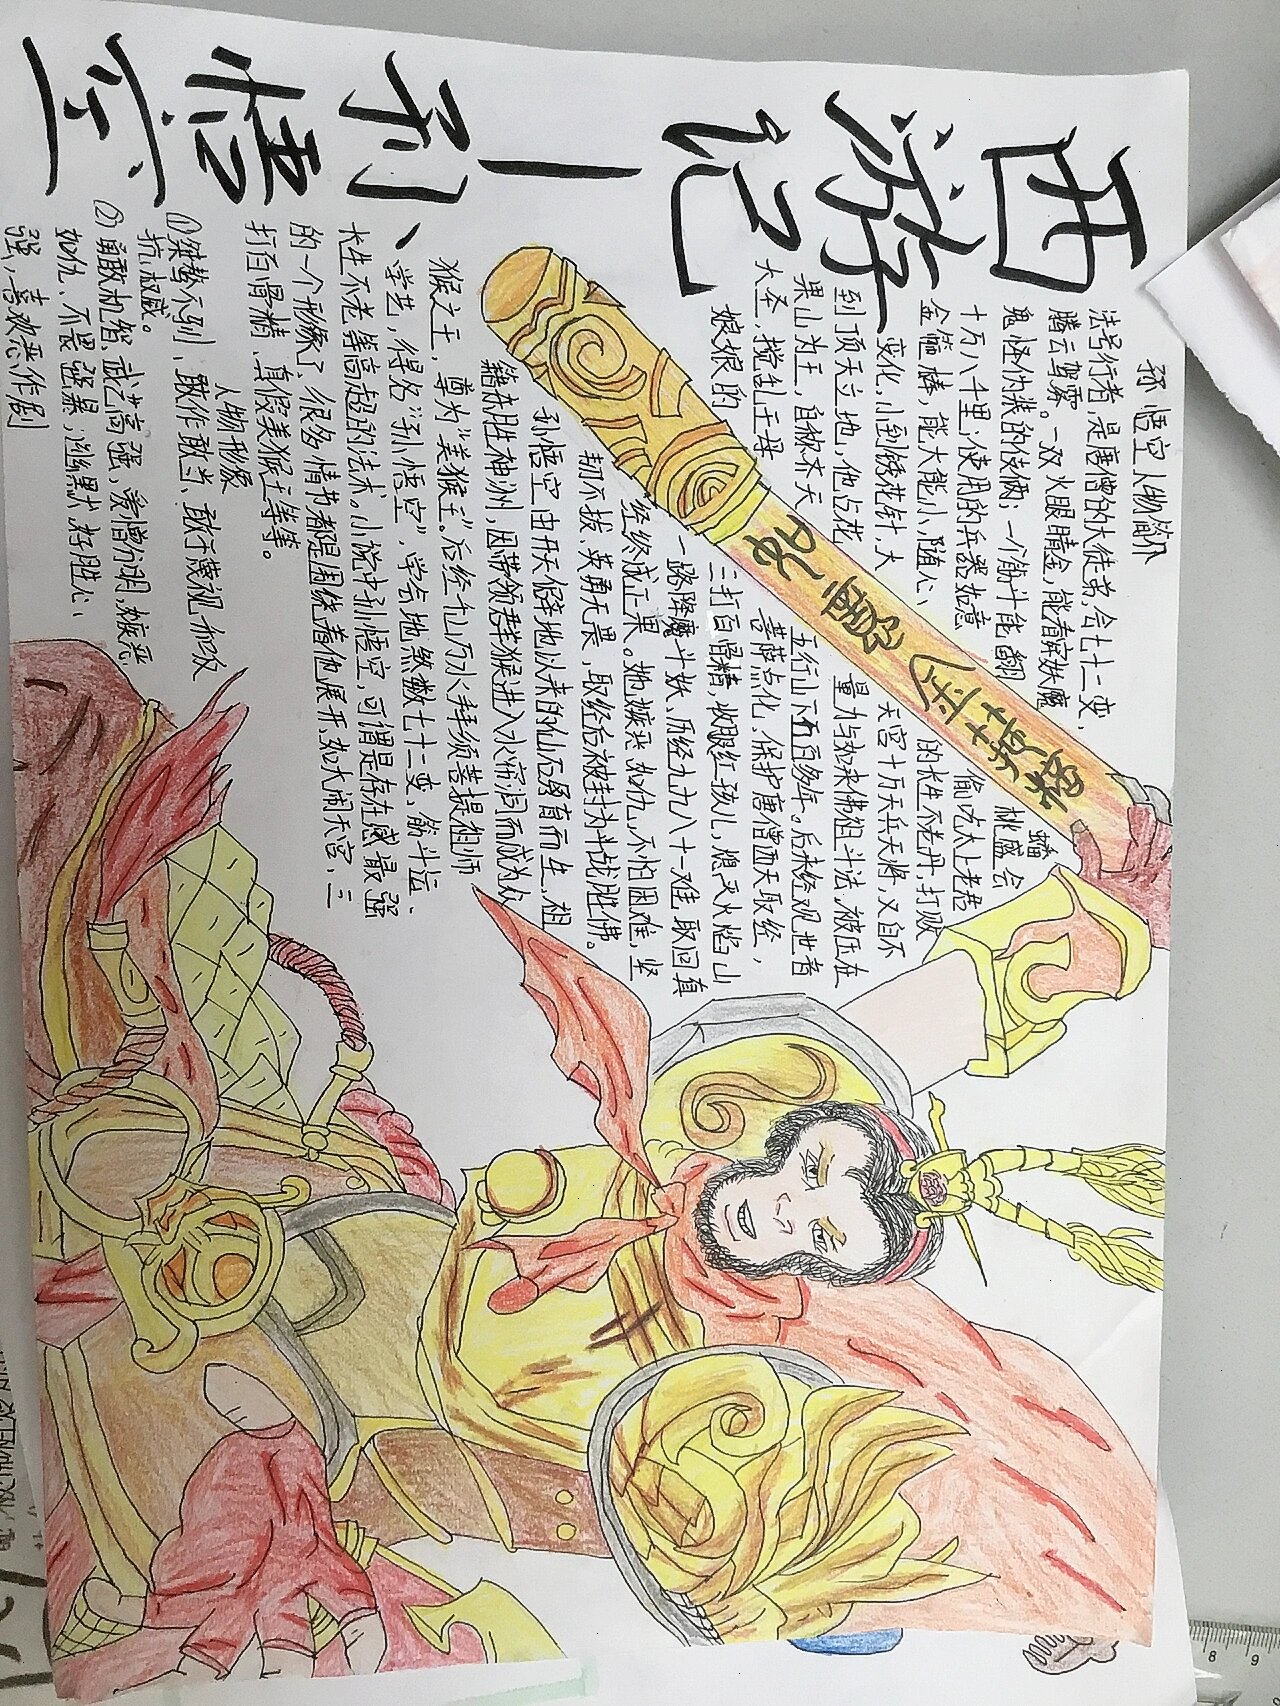 西游记—孙悟空
孙悟空人物简介
法号行者,是唐僧的大徒弟,会七十二变,
腾云驾雾。一双火眼睛金,能看穿妖魔
鬼怪伪装的伎俩;一个筋斗能翻
十万八千里;使用的兵器如意
金箍棒,能大能小,随心
变化,小到锈花针,大
到顶天立地,他占花
果山为王,自称齐天
大圣,搅乱王母
娘娘的
蟠
桃盛会
偷吃太上老君
的长生不老丹,打败
天宫十万天兵天将,又自不
量力与如来佛祖斗法,被压在
五行山下五百多年。后来经观世音
菩萨点化,保护唐僧西天取经,
三打白骨精,收服红孩儿,熄灭火焰山
一路降魔斗妖、历经九九八十一难,取回真
经终成正果。她嫉恶如仇,不怕困难,坚
韧不拔、英勇无畏,取经后被封为斗战胜佛。
孙悟空由开天僻地以来的仙石孕育而生,祖
籍东胜神洲,因带领群猴进入水帘洞而成为众
猴之王,尊为"美猴王。"后经千山万水拜须菩提祖师
学艺,得名"孙悟空",学会地煞数七十二变、筋斗运、
长生不老等高超的法术。小说中孙悟空,可谓是存在感最强
的一个形像了,很多情节都是围绕着他展开,如大闹天宫,三
打白骨精、真假美猴王等等。
人物形象
①桀骜不驯、敢作敢当、敢于蔑视和反
抗权威。
②勇敢机智,武艺高强,爱憎分明,嫉恶
如仇、不畏强暴;幽默、好胜心
强,喜欢恶作剧
金箍棒
8 9